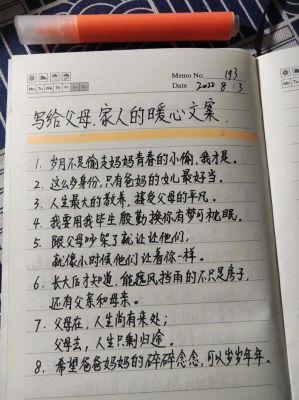 Memo No. 193
Mo Tu We Th Fr Sa Su
Date 2022 8 13
写给父母、家人的暖心文案.
1. 岁月不是偷走妈妈青春的小偷,我才是。
2. 这么多身份,只有爸妈的女儿最好当。
3. 人生最大的教养,接受父母的平凡。
4. 我要用我毕生殷勤换你有梦可枕眠。
5. 跟父母吵架了就让让他们,
就像小时候他们让着你一样。
6. 长大后才知道,能遮风挡雨的不只是房子,
还有父亲和母亲。
7. 父母在,人生尚有来处;
父母去,人生只剩归途。
8. 希望爸爸妈妈的碎碎念念,可以岁岁年年。